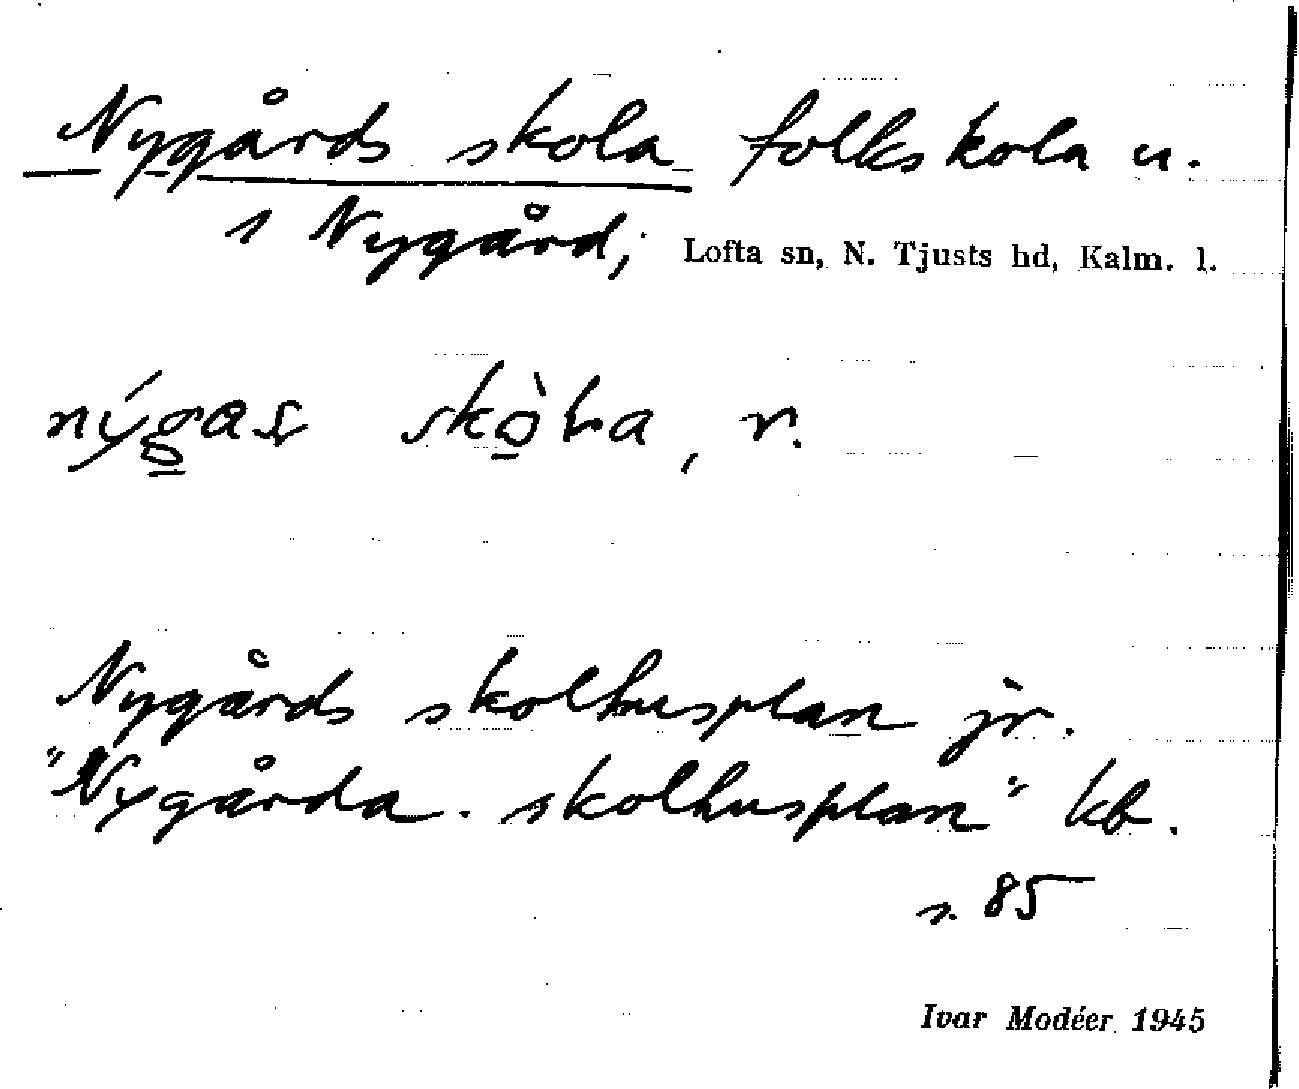 Nygårds skola folkskola u.
1 Nygård; Lofta sn, N. Tjusts hd, Kalm. l.
r.
Nygårds skolhusplan jr.
"Nygårda. skolhusplan" kb.
s. 85
Ivar Modéer 1945